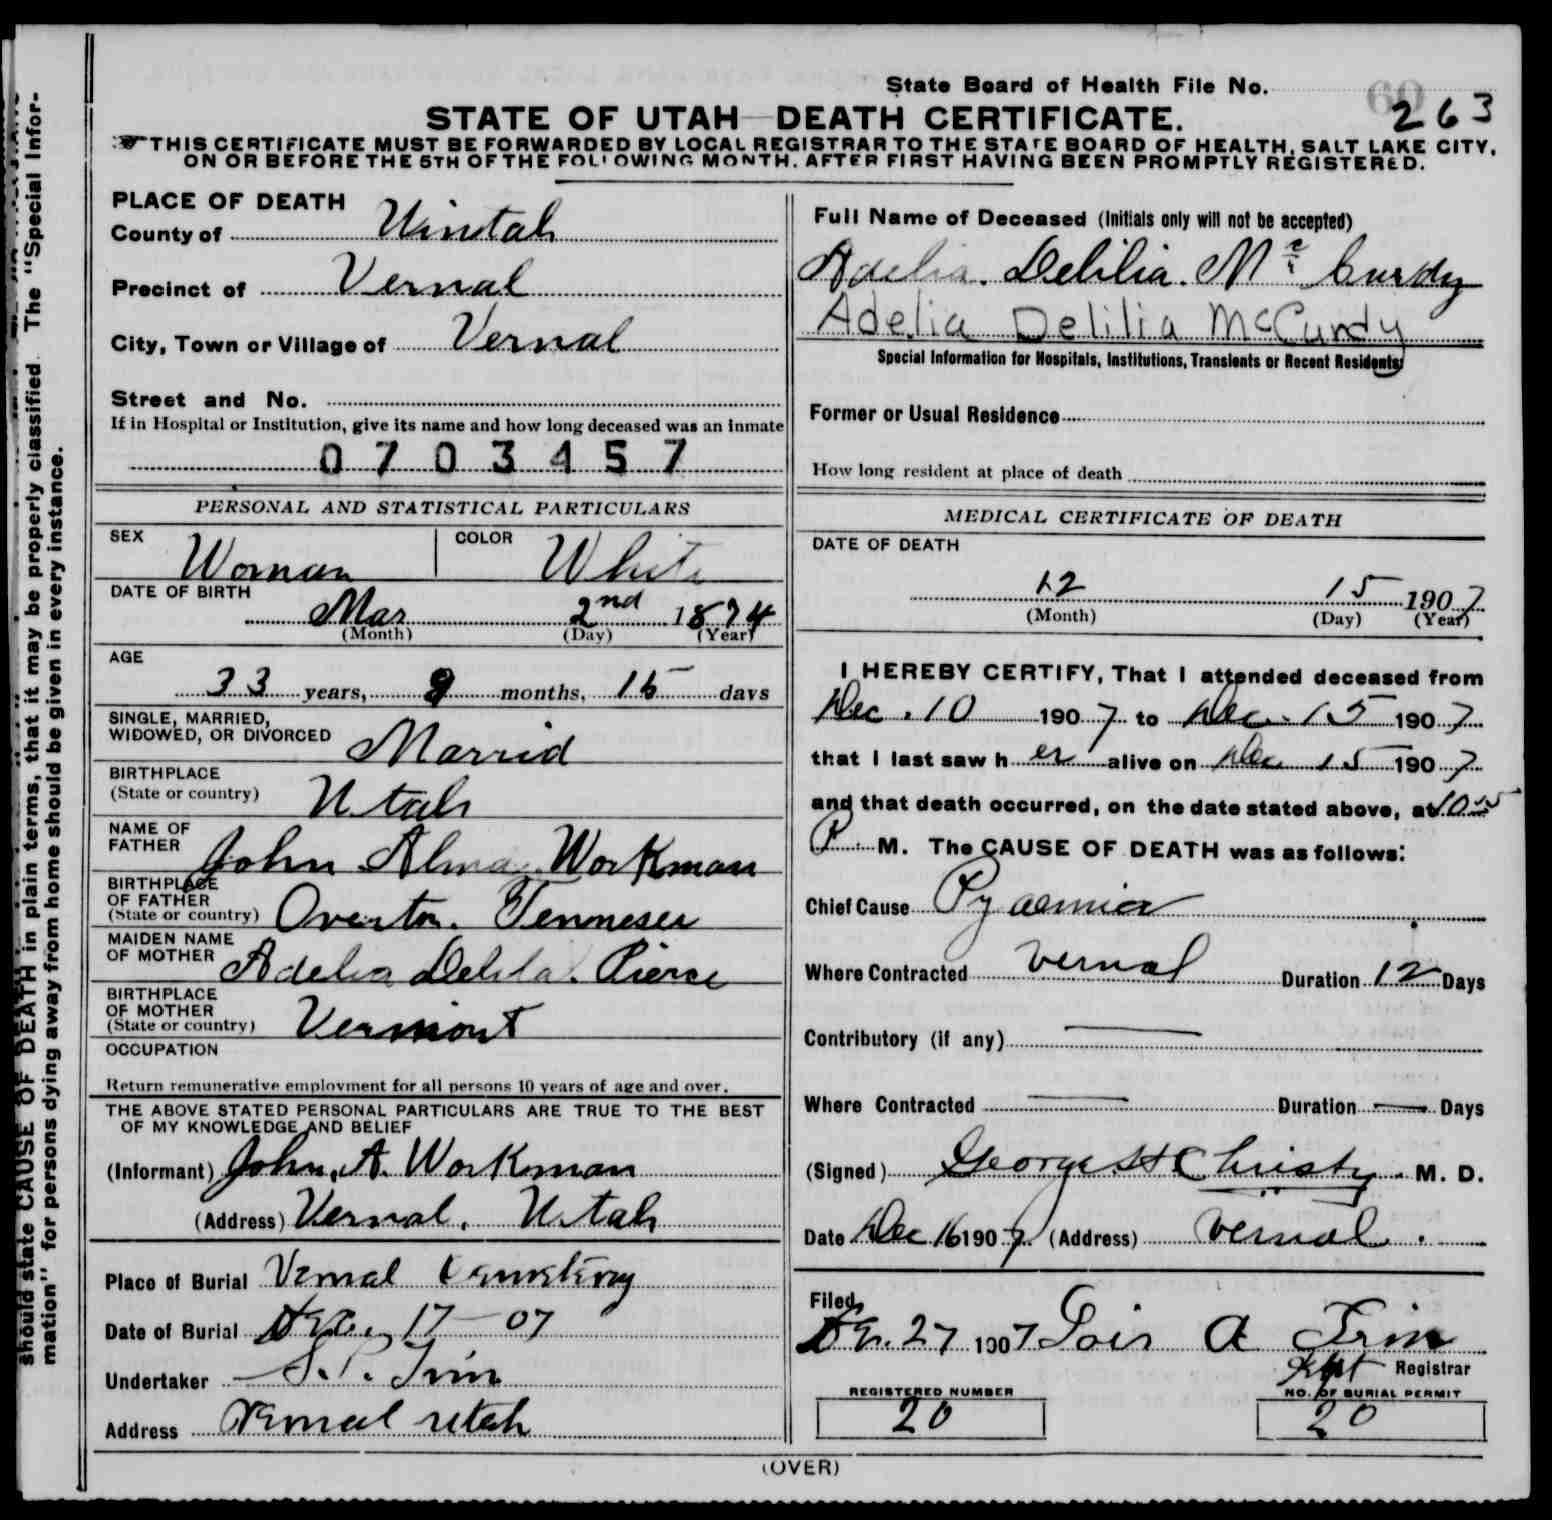 State Board of Health File No. 60 263
STATE OF UTAH DEATH CERTIFICATE.
THIS CERTIFICATE MUST BE FORWARDED BY LOCAL REGISTRAR TO THE STATE BOARD OF HEALTH, SALT LAKE CITY,
ON OR BEFORE THE 5TH OF THE FOLLOWING MONTH, AFTER FIRST HAVING BEEN PROMPTLY REGISTERED.
PLACE OF DEATH
County of Uintah
Precinct of Vernal
City, Town or Village of Vernal
Street and No.
If in Hospital or Institution, give its name and how long deceased was an inmate
0703457
PERSONAL AND STATISTICAL PARTICULARS
SEX Woman COLOR White
DATE OF BIRTH
Mar 2nd 1874
(Month) (Day) (Year)
AGE
33 years, 9 months, 15 days
SINGLE, MARRIED,
WIDOWED, OR DIVORCED Marrid
BIRTHPLACE
(State or country) Utah
NAME OF
FATHER John Alma Workman
BIRTHPLACE
OF FATHER
(State or country) Overton. Tennesee
MAIDEN NAME
OF MOTHER Adelia Delila Pierce
BIRTHPLACE
OF MOTHER
(State or country) Vermont
OCCUPATION
Return remunerative employment for all persons 10 years of age and over.
THE ABOVE STATED PERSONAL PARTICULARS ARE TRUE TO THE BEST
OF MY KNOWLEDGE AND BELIEF
(Informant) John A. Workman
(Address) Vernal, Utah
Place of Burial Vernal Cemetery
Date of Burial Dec. 17 - 07
Undertaker S. P. Trim
Address Vernal utah
Full Name of Deceased (Initials only will not be accepted)
Adelia. Delilia. Mc Curdy
Adelia Delilia McCurdy
Special Information for Hospitals, Institutions, Transients or Recent Residents
Former or Usual Residence
How long resident at place of death
MEDICAL CERTIFICATE OF DEATH
DATE OF DEATH
12 15 1907
(Month) (Day) (Year)
I HEREBY CERTIFY, That I attended deceased from
Dec. 10 1907 to Dec. 15 1907
that I last saw her alive on Dec 15 1907
and that death occurred, on the date stated above, at 10 15
P M. The CAUSE OF DEATH was as follows:
Chief Cause Pyaemia
Where Contracted Vernal Duration 12 Days
Contributory (if any) —
Where Contracted — Duration — Days
(Signed) George H Christy. M. D.
Date Dec 16 1907 (Address) Vernal.
Filed
Dec. 27 1907 Lois A Trim
Dept Registrar
REGISTERED NUMBER
20
NO. OF BURIAL PERMIT
20
(OVER)
should state CAUSE OF DEATH in plain terms, that it may be properly classified. The "Special Infor-
mation" for persons dying away from home should be given in every instance.